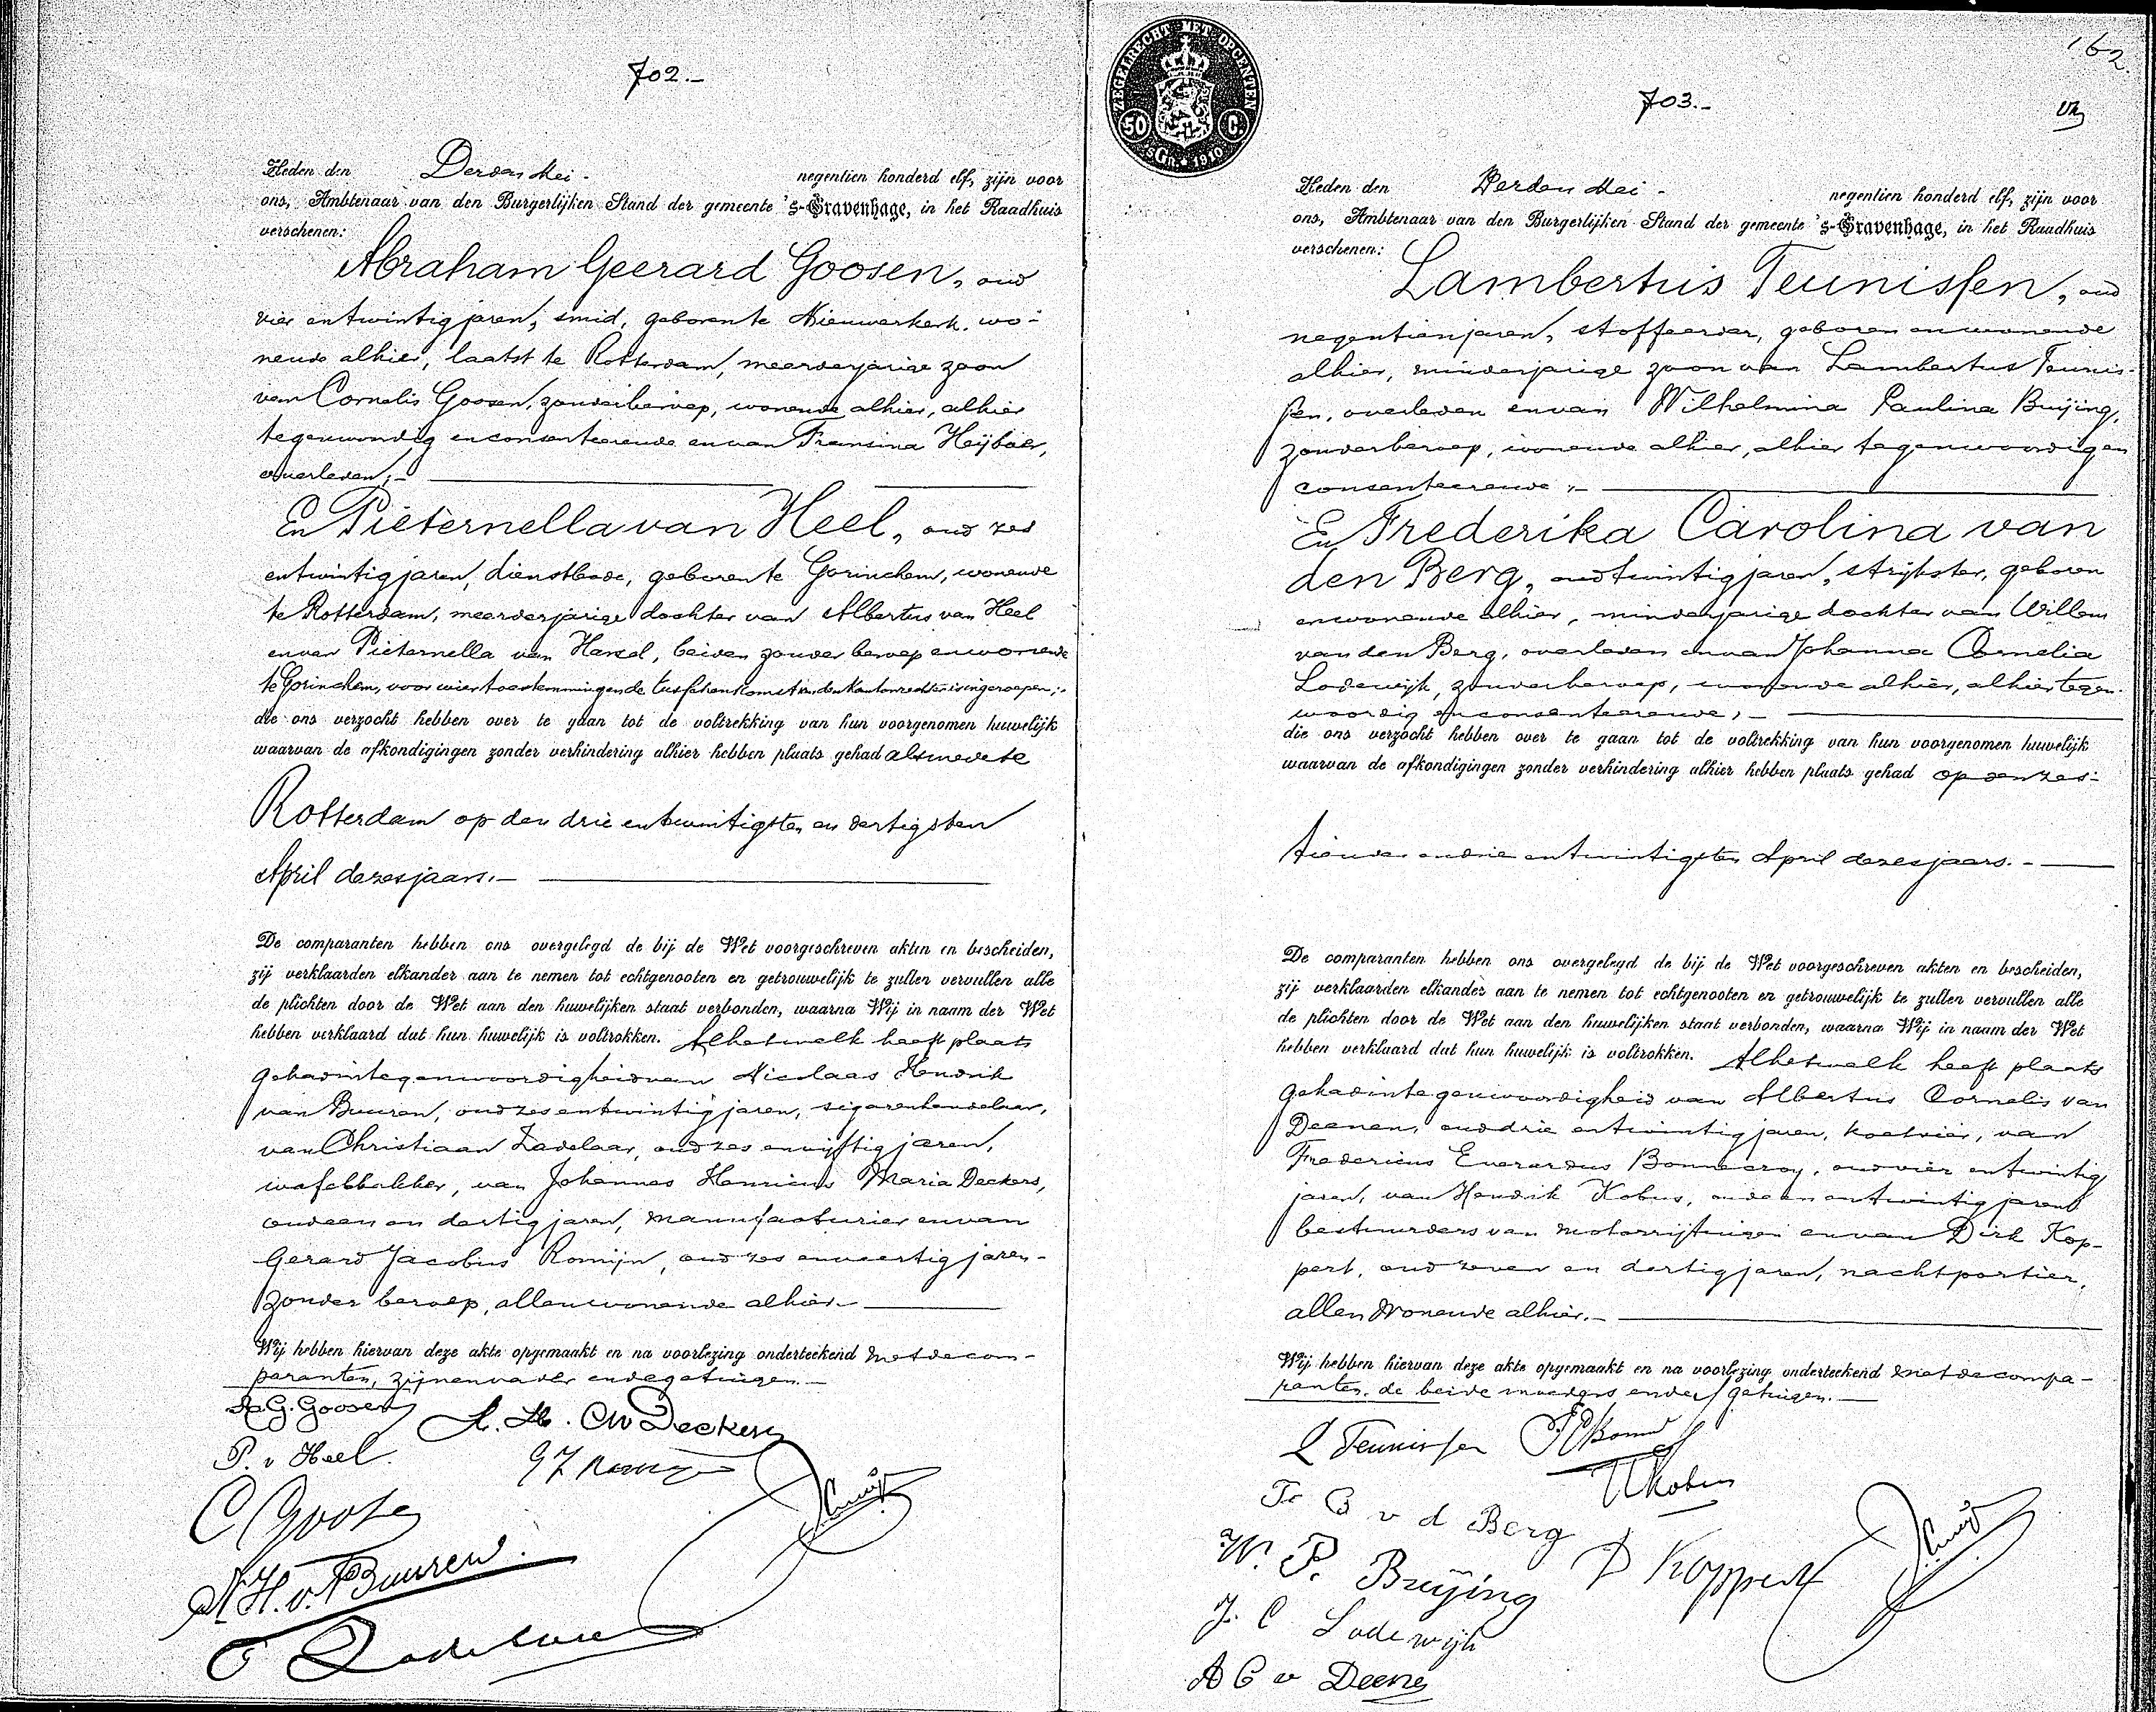 702.-
Heden den Derden Mei. negentien honderd elf, zijn voor
ons, Ambtenaar van den Burgerlijken Stand der gemeente 's-Gravenhage, in het Raadhuis
verschenen:
Abraham Geerard Goosen, oud
vier en twintig jaren, smid, geboren te Nieuwerkerk, wo-
nende alhier, laatst te Rotterdam, meerderjarige zoon
van Cornelis Goosen, zonder beroep, wonende alhier, alhier
tegenwoordig en consenteerende en van Fransina Heijboer,
overleden;-
En Pieternella van Heel, oud zes
en twintig jaren, dienstbode, geboren te Gorinchem, wonende
te Rotterdam, meerderjarige dochter van Albertus van Heel
en van Pieternella van, beiden zonder beroep en wonende
te Gorinchem, voor wier toestemming en de tusschenkomst van den Kantonrechter is ingeroepen;-
die ons verzocht hebben over te gaan tot de voltrekking van hun voorgenomen huwelijk
waarvan de afkondigingen zonder verhindering alhier hebben plaats gehad alsmede te
Rotterdam op den drie en twintigsten en dertigsten
April dezes jaars.-
De comparanten hebben ons overgelegd de bij de Wet voorgeschreven akten en bescheiden,
zij verklaarden elkander aan te nemen tot echtgenooten en getrouwelijk te zullen vervullen alle
de plichten door de Wet aan den huwelijken staat verbonden, waarna Wij in naam der Wet
hebben verklaard dat hun huwelijk is voltrokken. Al hetwelk heeft plaats
gehad in tegenwoordigheid van Nicolaas Hendrik
van Buuren, oud zes en twintig jaren, sigarenhandelaar,
van Christiaan Zadelaar, oud zes en vijftig jaren,
wafelbakker, van Johannes Henricus Maria Deckers,
oud een en dertig jaren, manufacturier en van
Gerard Jacobus Romijn, oud zes en veertig jaren
zonder beroep, allen wonende alhier.-
Wij hebben hiervan deze akte opgemaakt en na voorlezing onderteekend met de com-
paranten, zijnen vader en de getuigen.-
A.G. Goosen
P. v Heel.
C Goose
N.H. v. Buuren.
162
ZEGELRECHT MET OPCENTEN
50 C.
'sGr. 1910
703.-
Heden den Derden Mei - negentien honderd elf, zijn voor
ons, Ambtenaar van den Burgerlijken Stand der gemeente 's-Gravenhage, in het Raadhuis
verschenen:
Lambertus Teunissen, oud
negentien jaren, stoffeerder, geboren en wonende
alhier, minderjarige zoon van Lambertus Teunis-
sen, overleden en van Wilhelmina Paulina Buijing,
zonder beroep, wonende alhier, alhier tegenwoordig en
consenteerende;-
En Frederika Carolina van
den Berg, oud twintig jaren, strijkster, geboren
en wonende alhier, minderjarige dochter van Willem
van den Berg, overleden en van Johanna Cornelia
Lodewijk, zonder beroep, wonende alhier, alhier tegen-
woordig en consenteerende;-
die ons verzocht hebben over te gaan tot de voltrekking van hun voorgenomen huwelijk
waarvan de afkondigingen zonder verhindering alhier hebben plaats gehad op den zes-
tienden en drie en twintigsten April dezes jaars.-
De comparanten hebben ons overgelegd de bij de Wet voorgeschreven akten en bescheiden,
zij verklaarden elkander aan te nemen tot echtgenooten en getrouwelijk te zullen vervullen alle
de plichten door de Wet aan den huwelijken staat verbonden, waarna Wij in naam der Wet
hebben verklaard dat hun huwelijk is voltrokken. Al hetwelk heeft plaats
gehad in tegenwoordigheid van Albertus Cornelis van
Deenen, oud drie en twintig jaren, koetsier, van
Fredericus Everardus Bonneroy, oud vier en twintig
jaren, van Hendrik Kobus, oud een en twintig jaren
bestuurders van motorrijtuigen en van Dirk Kop-
pert, oud zeven en dertig jaren, nachtportier,
allen wonende alhier.-
Wij hebben hiervan deze akte opgemaakt en na voorlezing onderteekend met de compa-
ranten, de beide moeders en de getuigen.-
L Teunissen
H Kobus
Fr C v d Berg
W. P. Buijing
D Koppert
J. C Lodewijk
A C v Deene